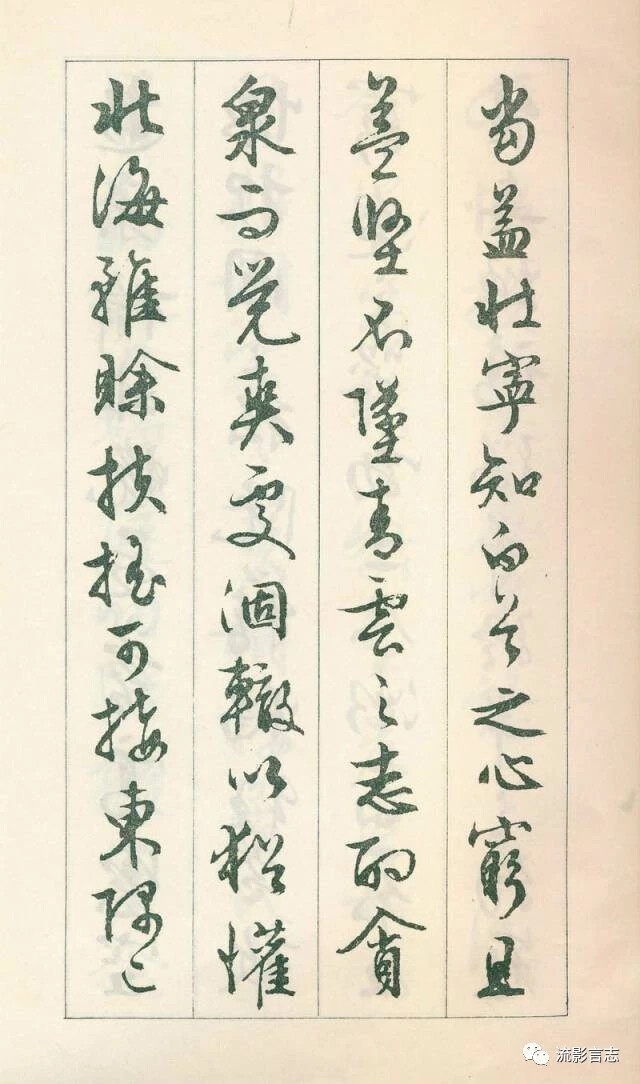 當益壯寧知白首之心窮且
益堅不墜青雲之志酌貪
泉而覺爽處涸轍以猶懽
北海雖賒扶搖可接東隅已
流影言志